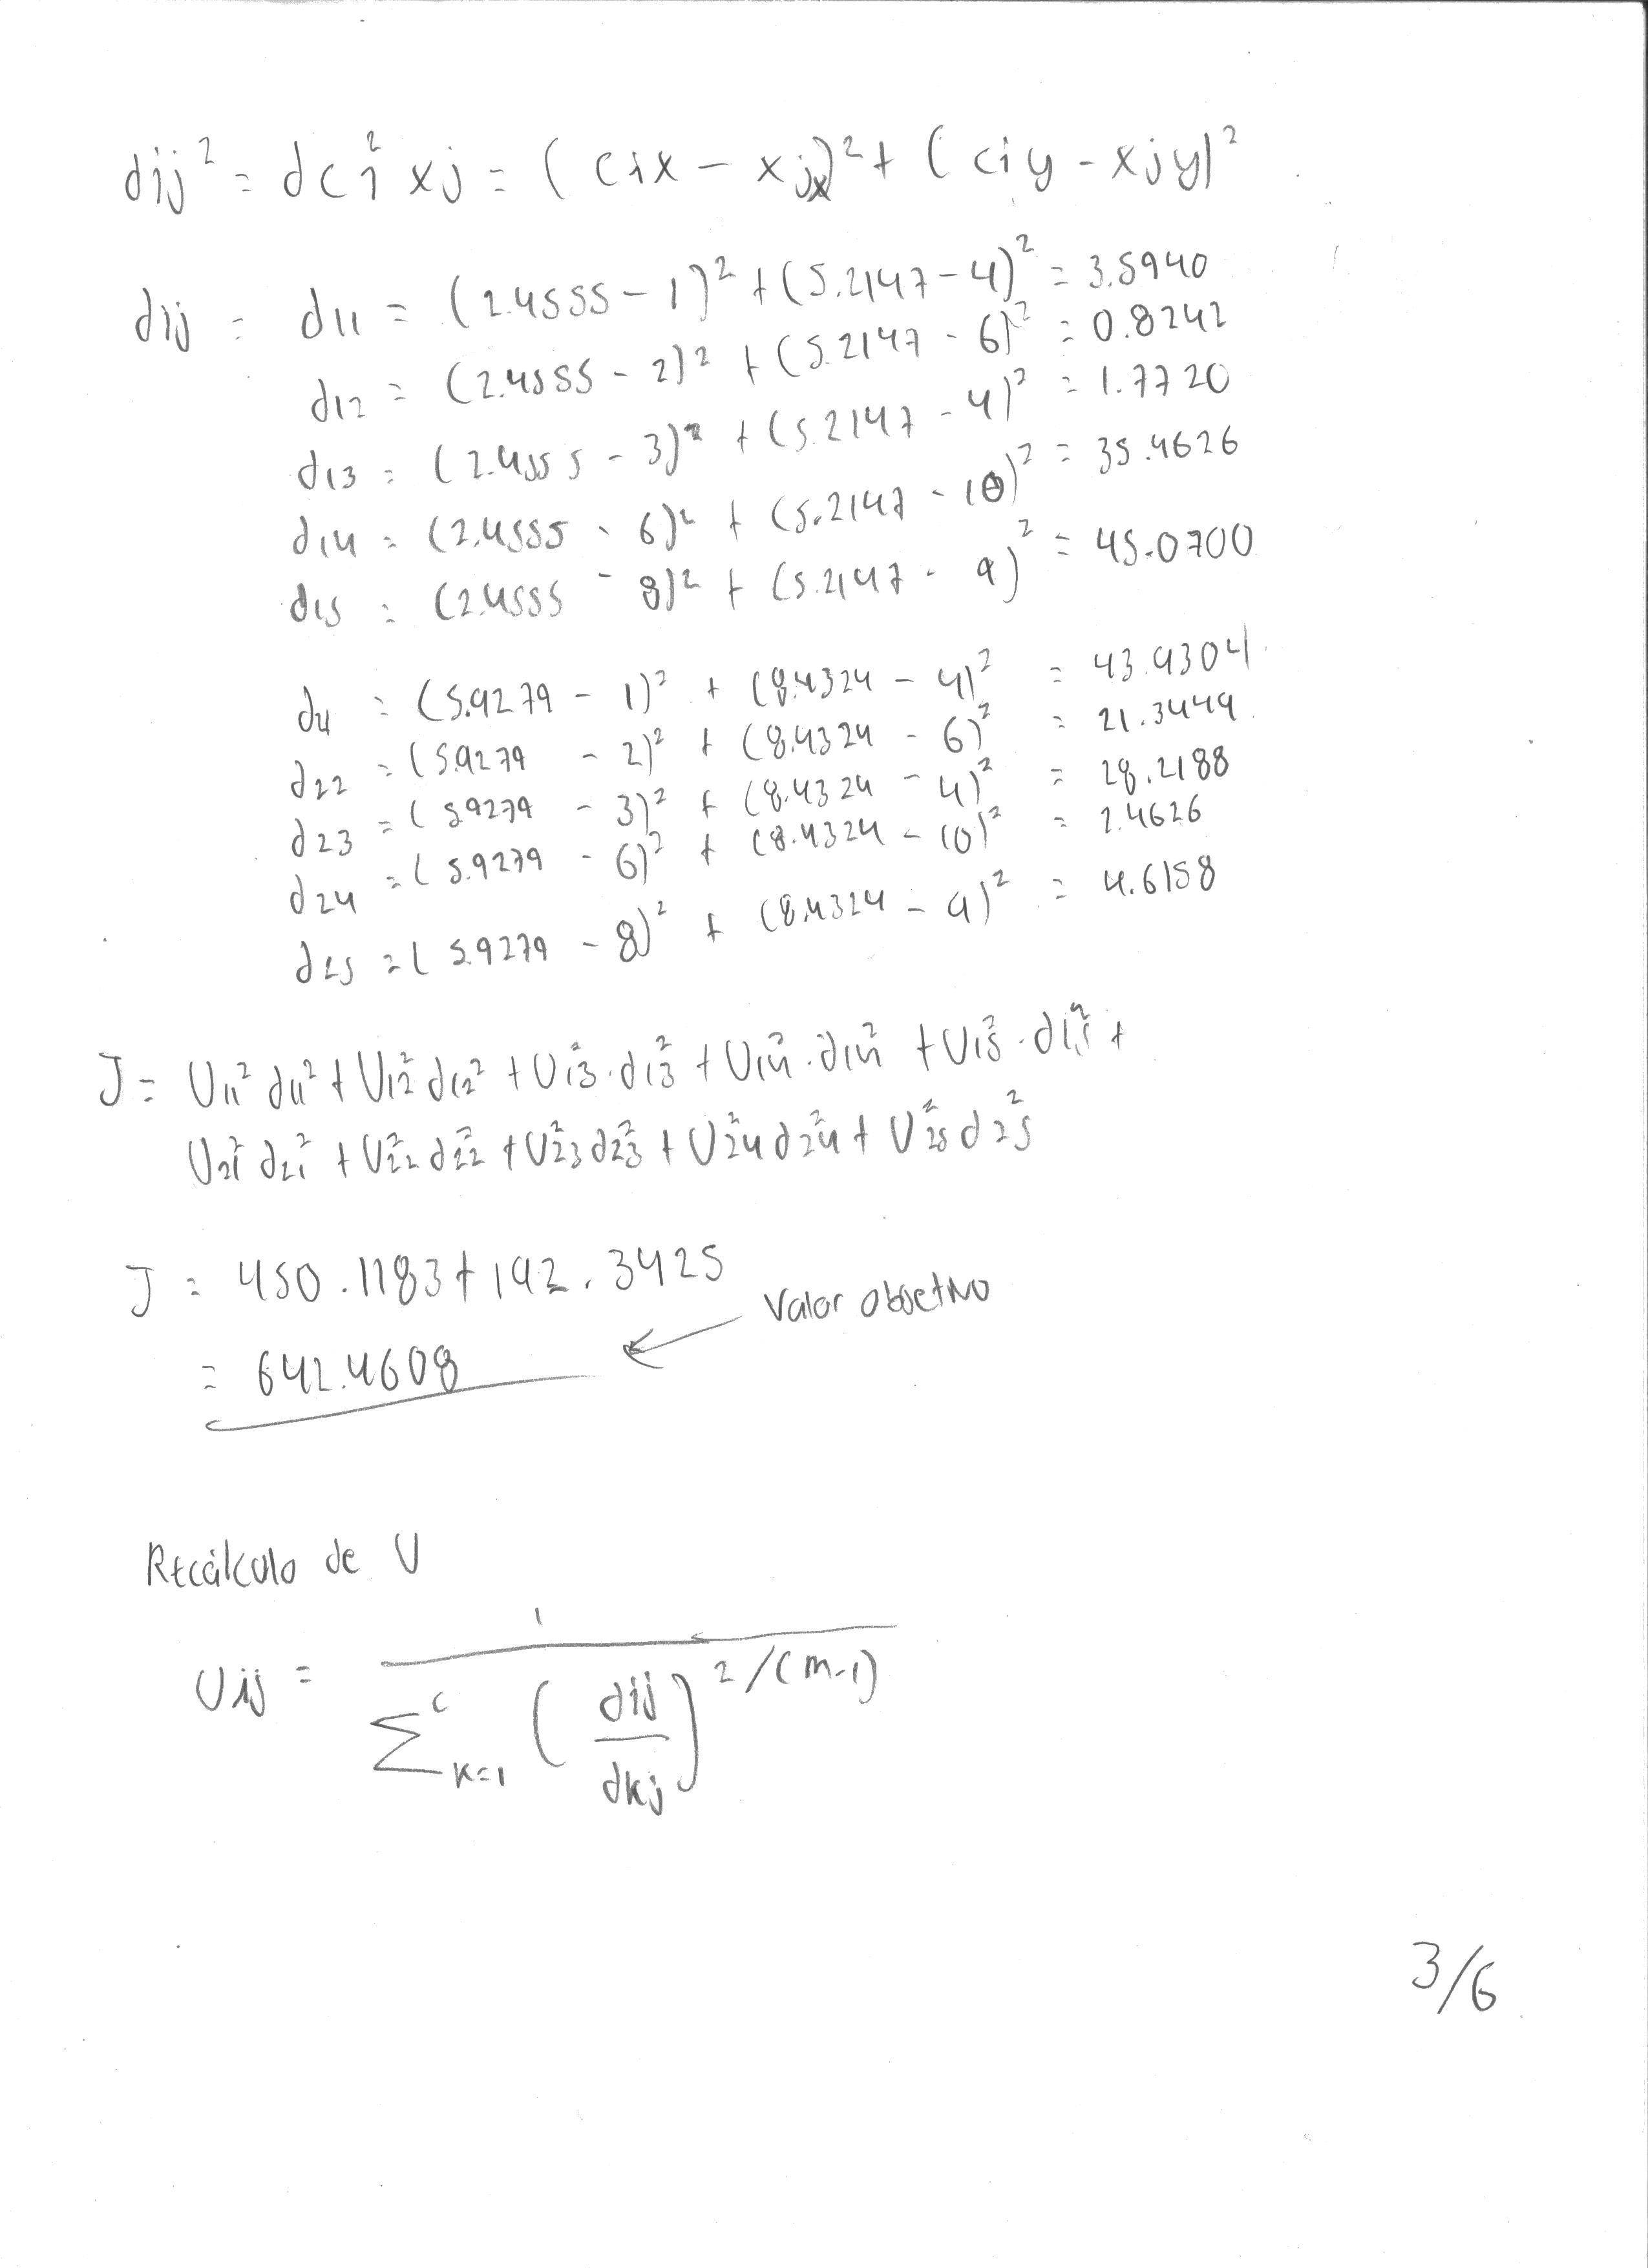 dij² = dci² xj = (cix - xjx)² + (ciy - xjy)²
dij = d11 = (2.4555 - 1)² + (5.2147 - 4)² = 3.5940
d12 = (2.4555 - 2)² + (5.2147 - 6)² = 0.8242
d13 = (2.4555 - 3)² + (5.2147 - 4)² = 1.7720
d14 = (2.4555 - 6)² + (5.2147 - 10)² = 35.4626
d15 = (2.4555 - 8)² + (5.2147 - 9)² = 45.0700
d21 = (5.9279 - 1)² + (8.4324 - 4)² = 43.9304
d22 = (5.9279 - 2)² + (8.4324 - 6)² = 21.3449
d23 = (5.9279 - 3)² + (8.4324 - 4)² = 28.2188
d24 = (5.9279 - 6)² + (8.4324 - 10)² = 2.4626
d25 = (5.9279 - 8)² + (8.4324 - 9)² = 4.6158
J = U11² d11² + U12² d12² + U13² · d13² + U14² · d14² + U15² · d15² +
U21² d21² + U22² d22² + U23² d23² + U24² d24² + U25² d25²
J = 450.1183 + 192.3425
Valor objetivo
= 642.4608
Recálculo de U
Uij = 1 / Σ^c k=1 (dij / dkj)^2/(m-1)
3/6